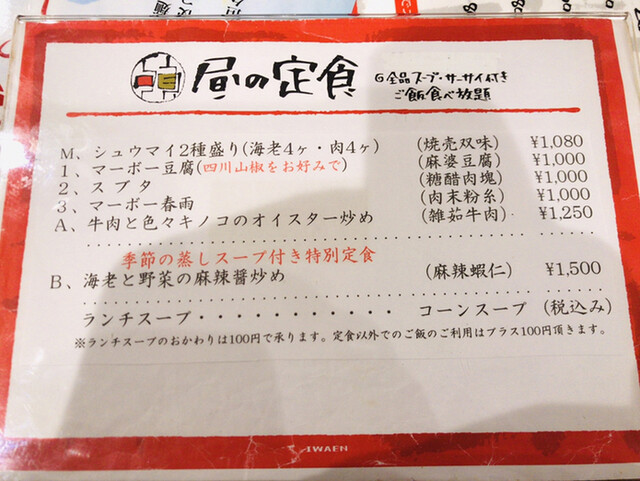 昼の定食
全品スープ・サーサイ付き
ご飯食べ放題
M、シュウマイ2種盛り(海老4ヶ・肉4ヶ) (焼売双味) ¥1,080
1、マーボー豆腐(四川山椒をお好みで) (麻婆豆腐) ¥1,000
2、スブタ (糖醋肉塊) ¥1,000
3、マーボー春雨 (肉末粉糸) ¥1,000
A、牛肉と色々キノコのオイスター炒め (雑茹牛肉) ¥1,250
季節の蒸しスープ付き特別定食
B、海老と野菜の麻辣醤炒め (麻辣蝦仁) ¥1,500
ランチスープ・・・・・・・・・・・ コーンスープ (税込み)
※ランチスープのおかわりは100円で承ります。定食以外でのご飯のご利用はプラス100円頂きます。
IWAEN